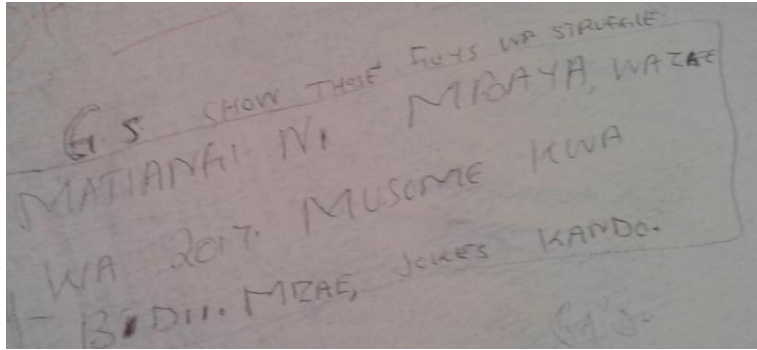 G.S. SHOW THOSE GUYS WA STRUGGLE
MATIANG'I NI MBAYA, WAZAE
WA 2017. MUSOME KWA
BIDII. MZAE, JOKES KANDO.